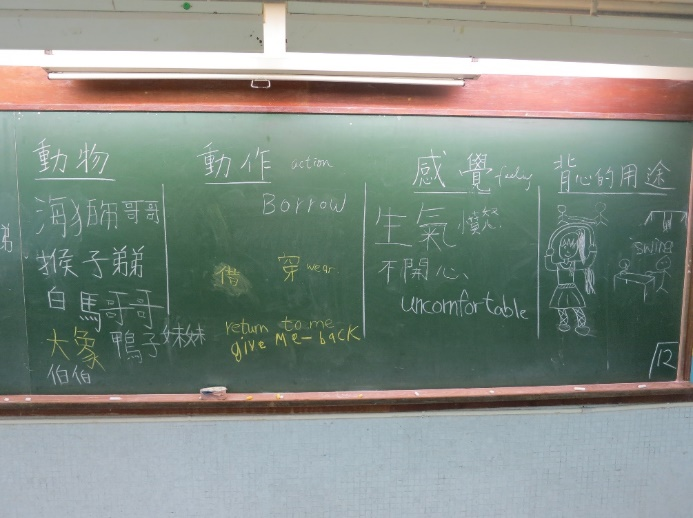 動物
海獅哥哥
猴子弟弟
白馬哥哥
大象 鴨子妹妹
伯伯
動作 action
Borrow
借 穿 wear
return to me
give me-back
感覺 feeling
生氣 憤怒
不開心、
uncomfortable
背心的用途
swing
12
弟